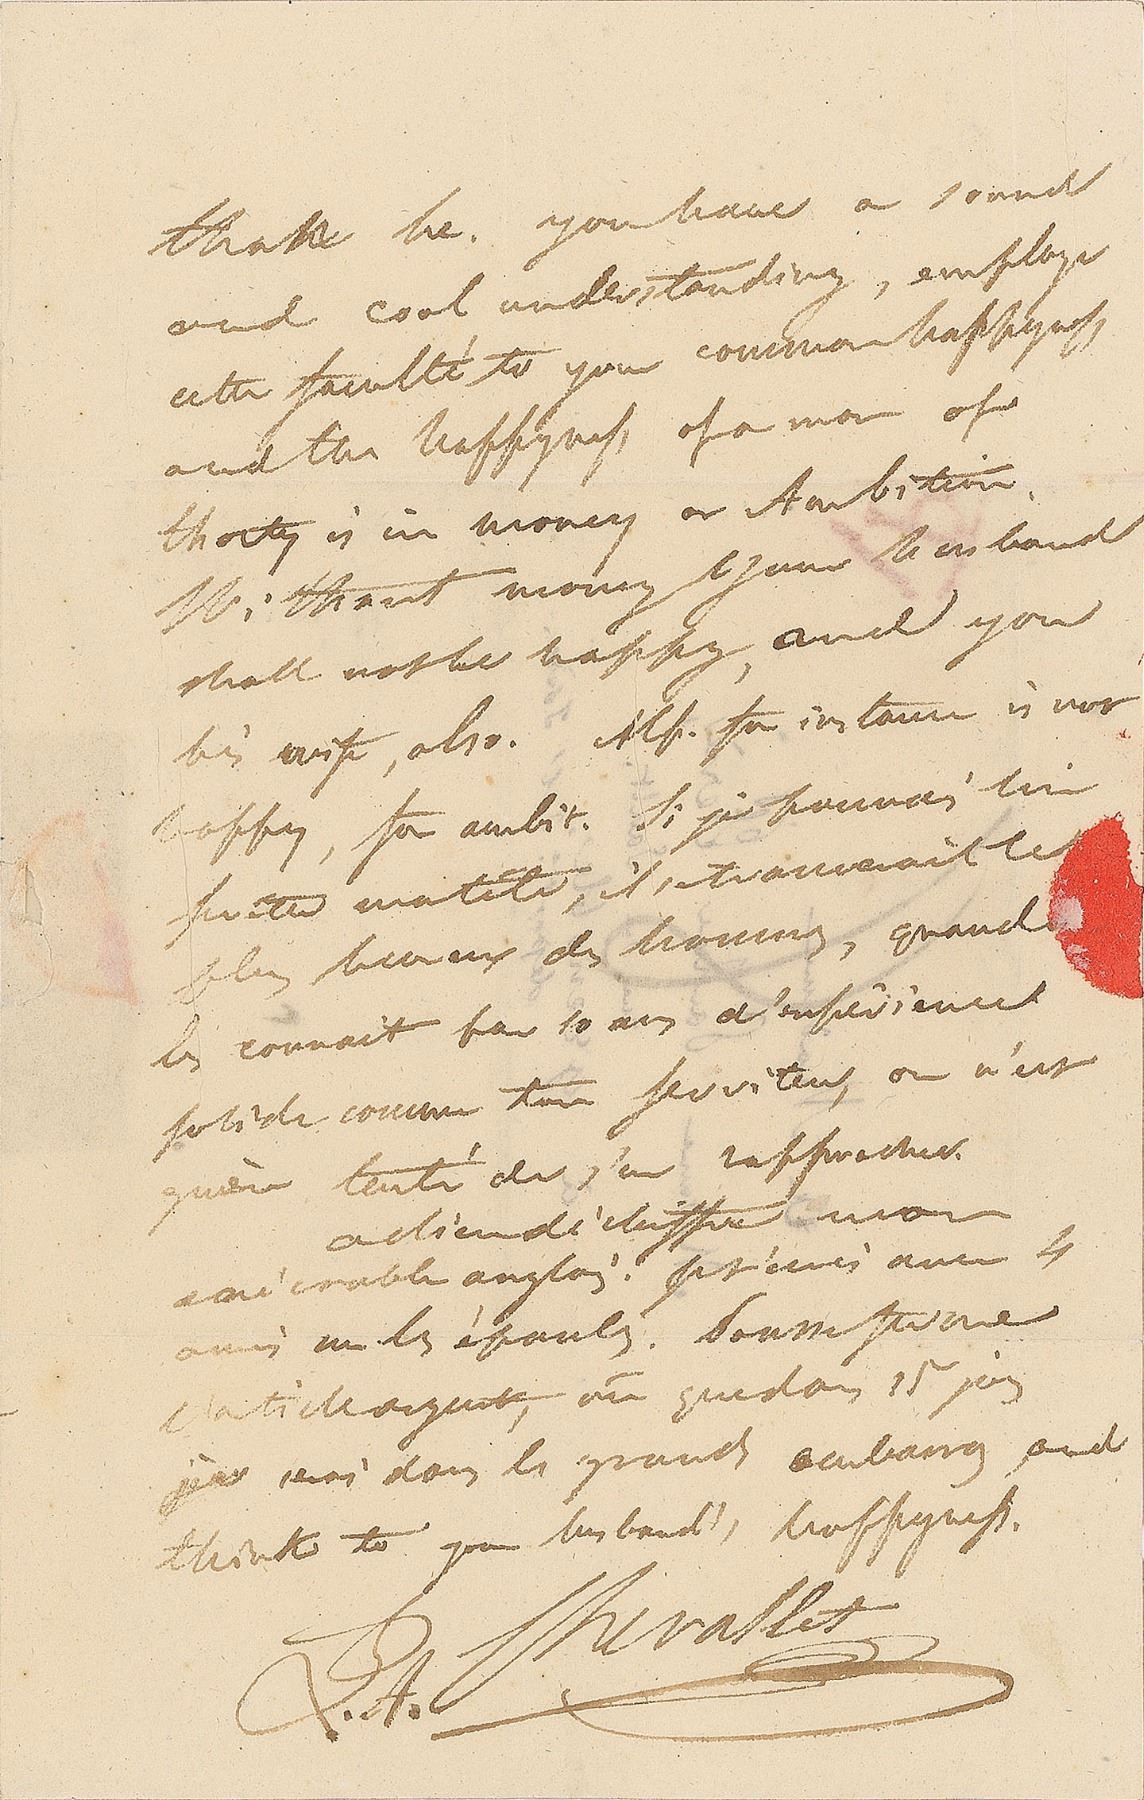 thake he. you have a sound
and cool understanding, employe
cette faculté to your common happyness
and the happyness of a man of
thorty is in money or Ambition.
Without money your husband
shall not be happy, and you
his wife, also. Alp. for instance is not
happy, for ambit. Si je pouvais lui
prêter matilde, il se trouverait le
plus heureux des hommes, quand
les connait par 10 ans d'expérience
solide comme ton serviteur, on n'est
guère tenté de s'en rapprocher.
adieu déchiffre mon
exécrable anglais. J'écris avec 4
amis sur les épaules. Donne
de argent, où que dans 15 jours
je serai dans le grands embarras and
think to your husband's happyness.
P. A. Chevallet